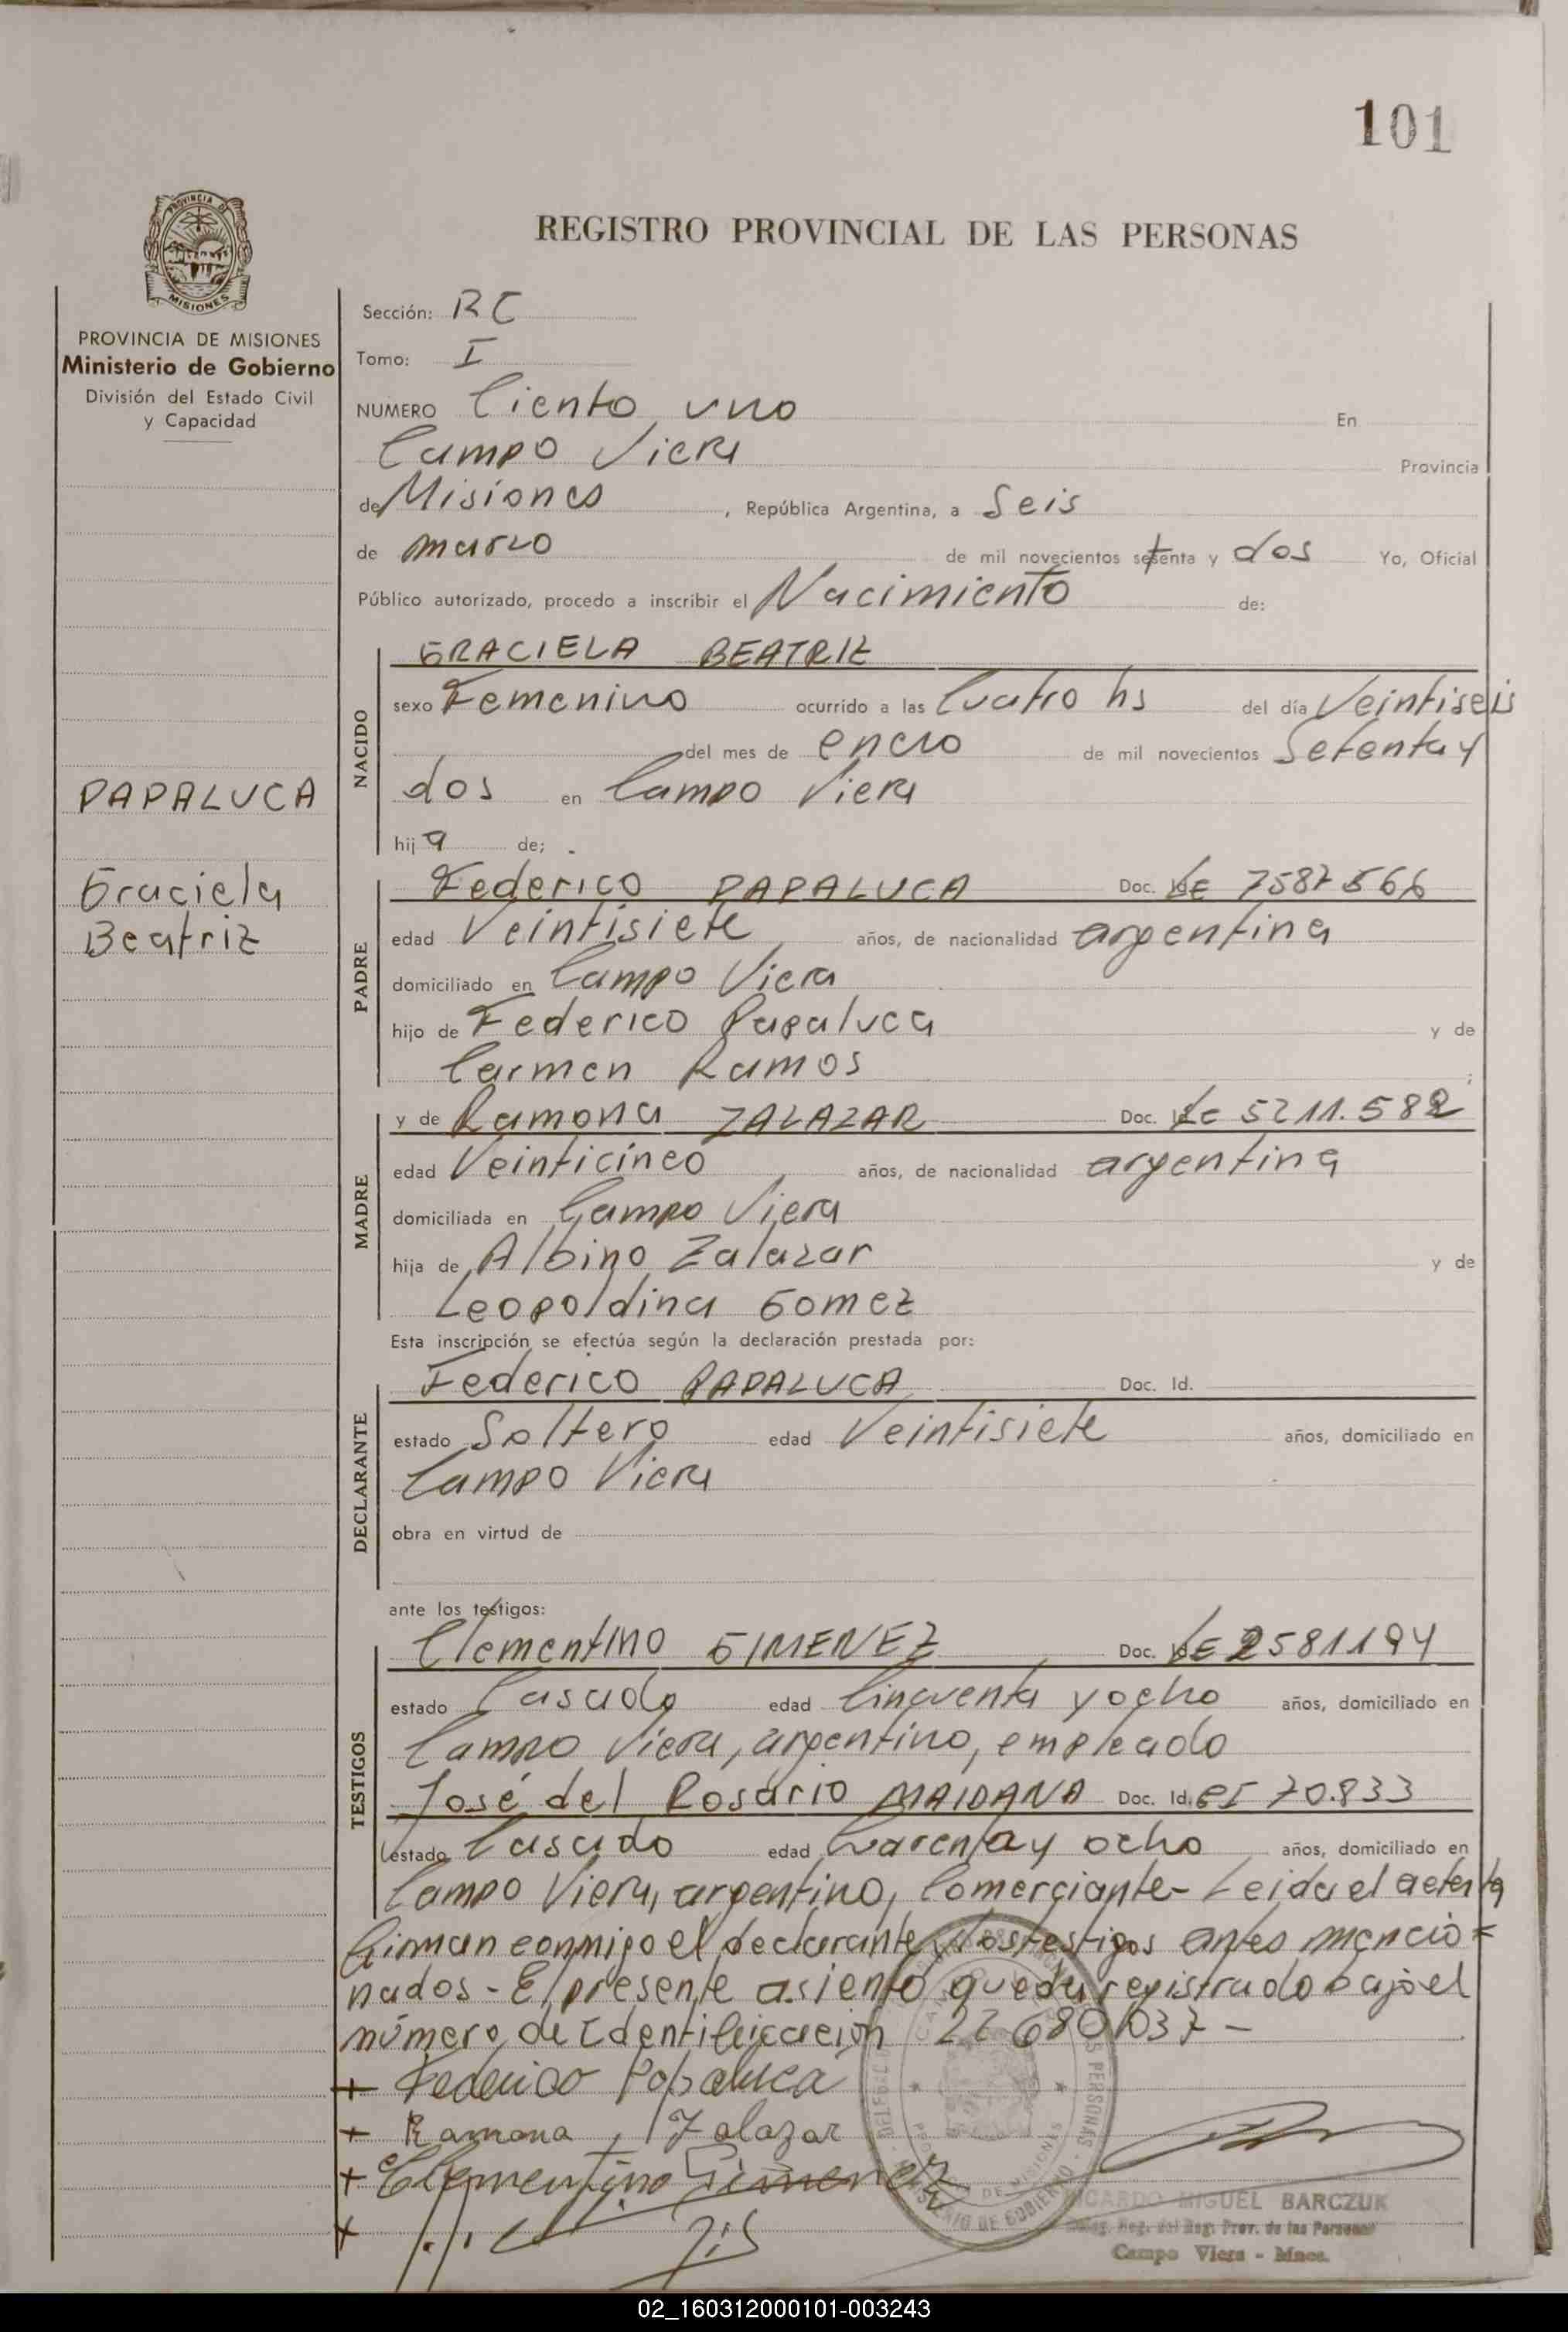 101
PROVINCIA DE
MISIONES
REGISTRO PROVINCIAL DE LAS PERSONAS
PROVINCIA DE MISIONES
Ministerio de Gobierno
División del Estado Civil
y Capacidad
PAPALUCA
Graciela
Beatriz
Sección: RC
Tomo: I
NUMERO Ciento uno En
Campo Viera Provincia
de Misiones, República Argentina, a Seis
de marzo de mil novecientos setenta y dos Yo, Oficial
Público autorizado, procedo a inscribir el Nacimiento de:
NACIDO
GRACIELA BEATRIZ
sexo Femenino ocurrido a las Cuatro hs del día Veintiseis
del mes de enero de mil novecientos Setenta y
dos en Campo Viera
hija de;
PADRE
Federico PAPALUCA Doc. LE 7587566
edad Veintisiete años, de nacionalidad argentina
domiciliado en Campo Viera
hijo de Federico Papaluca y de
Carmen Ramos ;
MADRE
y de Ramona ZALAZAR Doc. Lc 5211.582
edad Veinticinco años, de nacionalidad argentina
domiciliada en Campo Viera
hija de Albino Zalazar y de
Leopoldina Gomez
Esta inscripción se efectúa según la declaración prestada por:
DECLARANTE
Federico PAPALUCA Doc. Id.
estado Soltero edad Veintisiete años, domiciliado en
Campo Viera
obra en virtud de
ante los testigos:
TESTIGOS
Clementino GIMENEZ Doc. LE 2581194
estado Casado edad Cincuenta y ocho años, domiciliado en
Campo Viera, argentino, empleado
José del Rosario MAIDANA Doc. Id. CI 70.833
estado Casado edad Cuarenta y ocho años, domiciliado en
Campo Viera, argentino, Comerciante- Leida el acta la
firman conmigo el declarante y los testigos antes mencio=
nados - El presente asiento queda registrado bajo el
número de Identificacion 22680037-
+ Federico Papaluca
+ Ramona Zalazar
+ Clementino Gimenez
+
RICARDO MIGUEL BARCZUK
Deleg. Reg. del Reg. Prov. de las Personas
Campo Viera - Mnes.
02_160312000101-003243